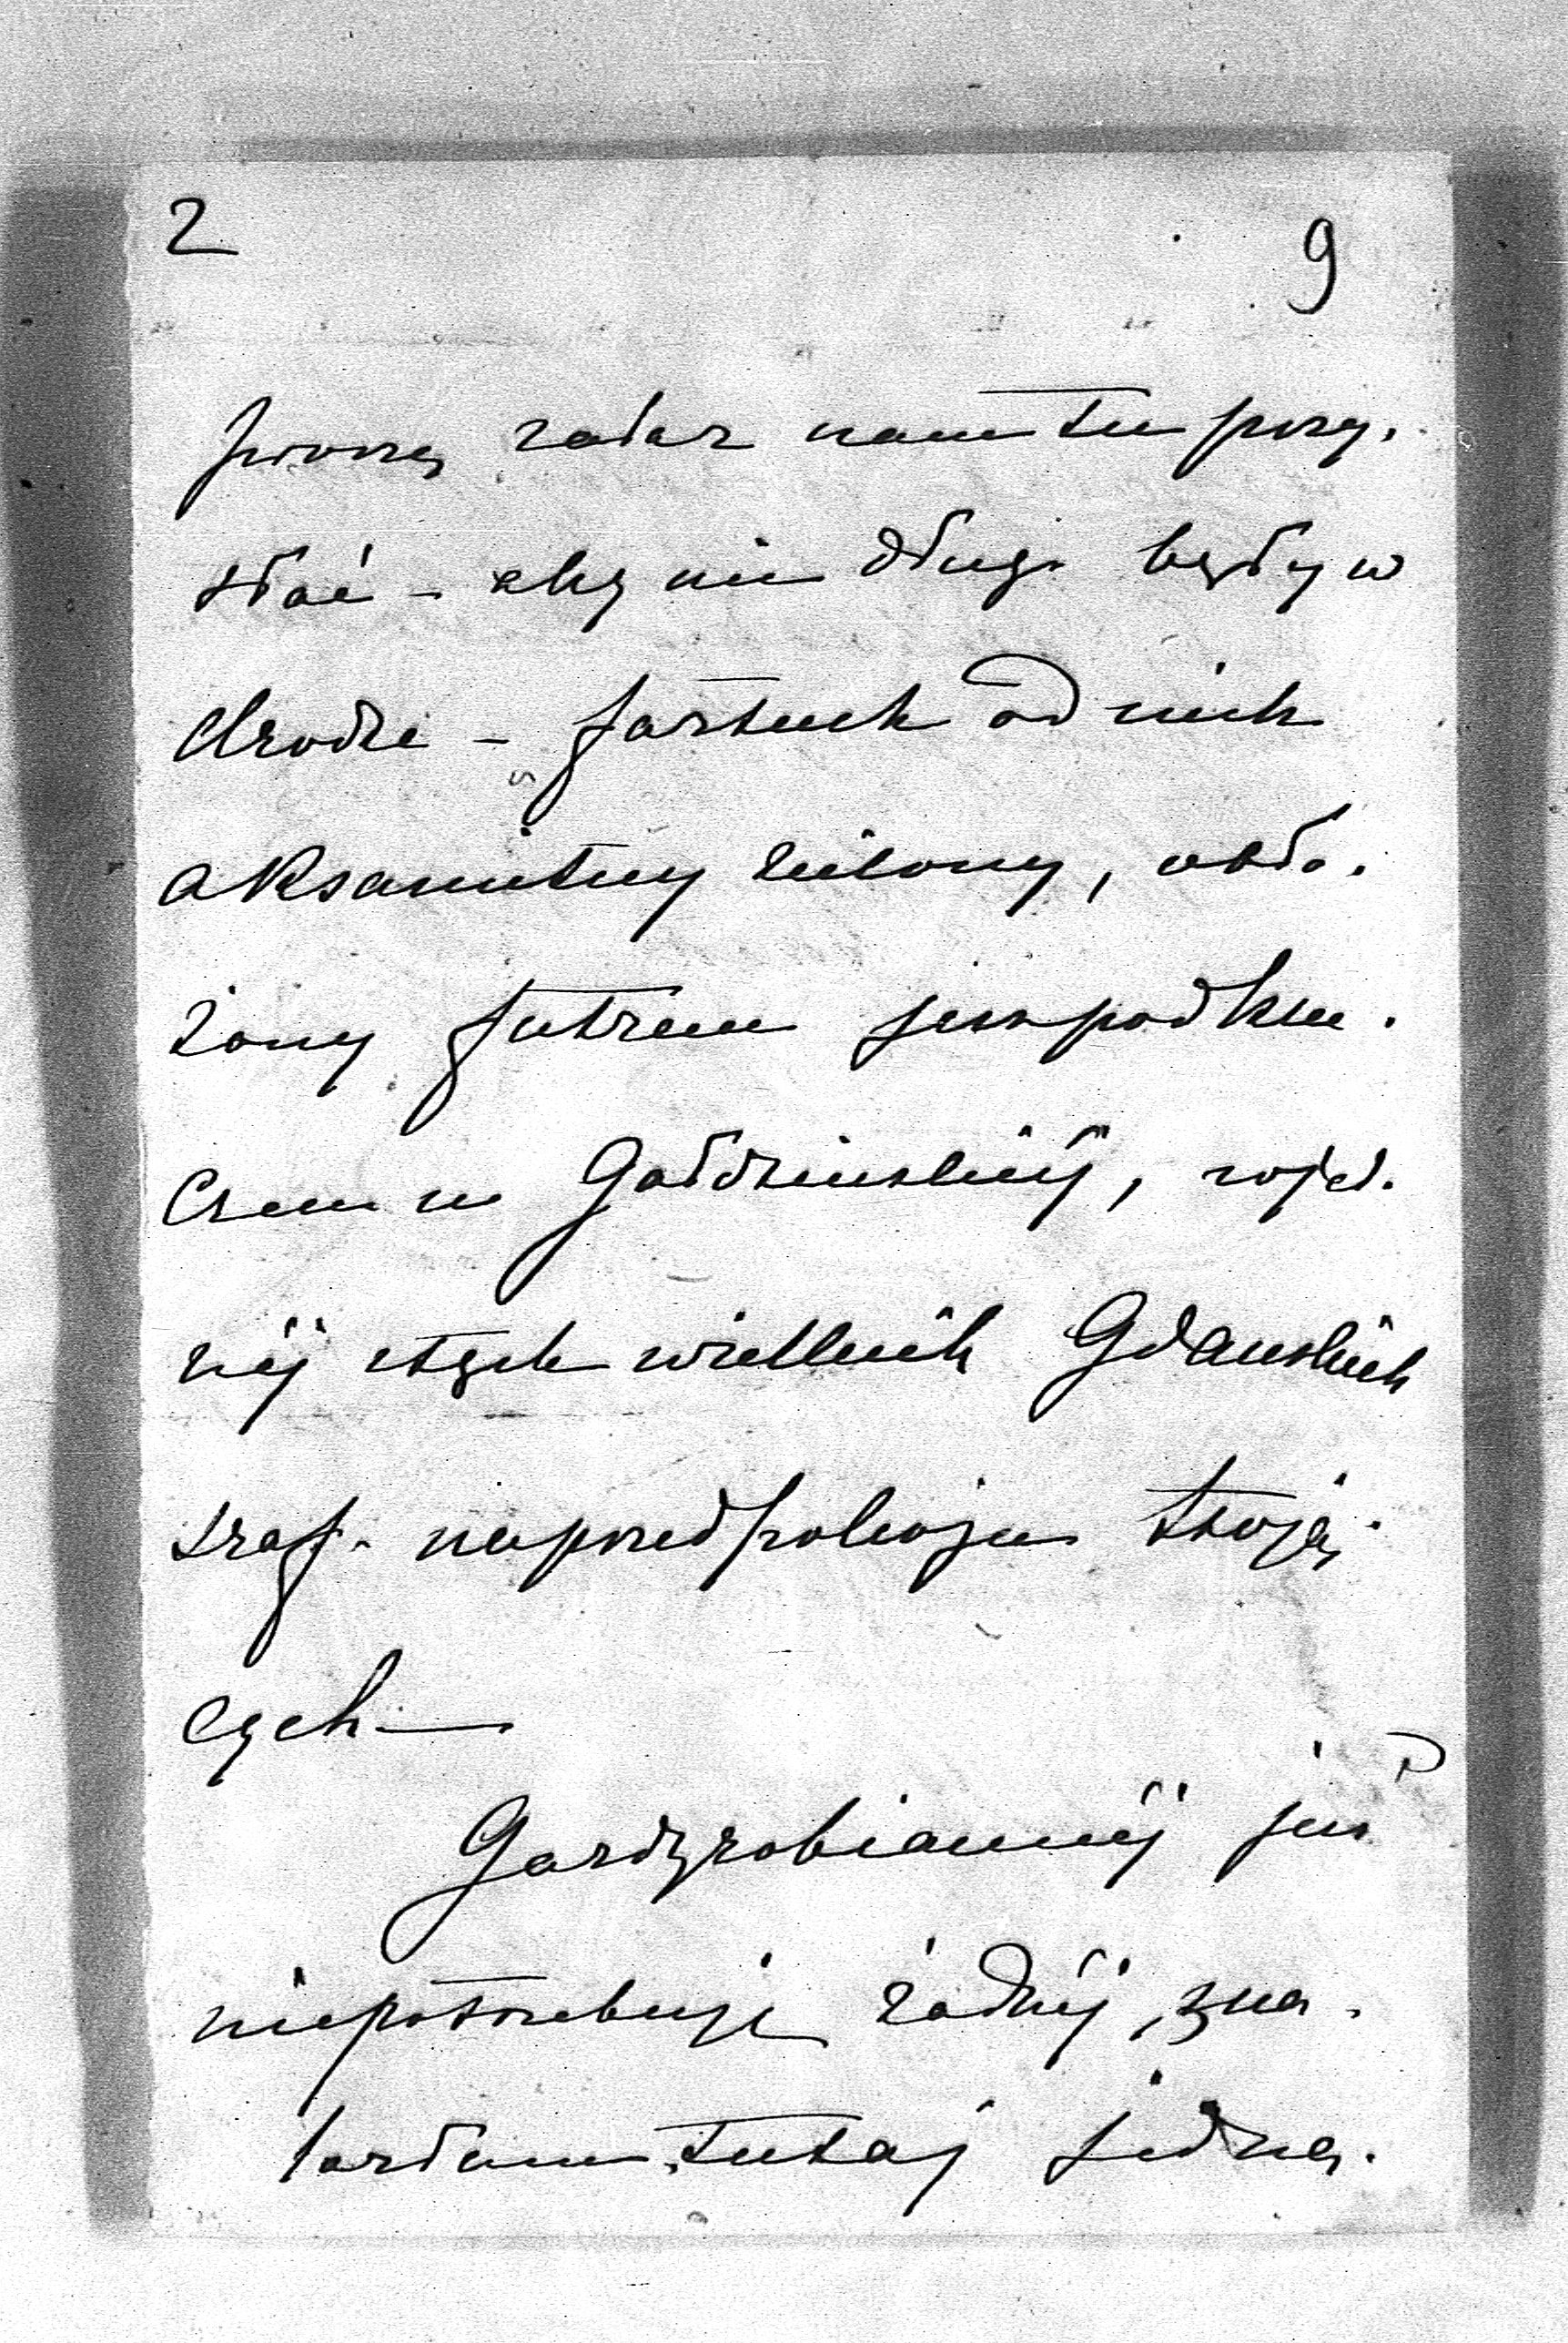 2 9
proszę zaraz nam tu przy-
słać – aby nie długo były w
drodze – fartuch od nich
aksamitny zielony, obło-
żony futrem jest pod klu-
czem u Gałdzinskiéj, w jed-
néj z tych wielkich Gdanskich
szaf na przedpokoju stoją-
cych —
Gardyrobiannéj już
niepotrzebuję żadnéj, zna-
lazłam tutaj jedną.